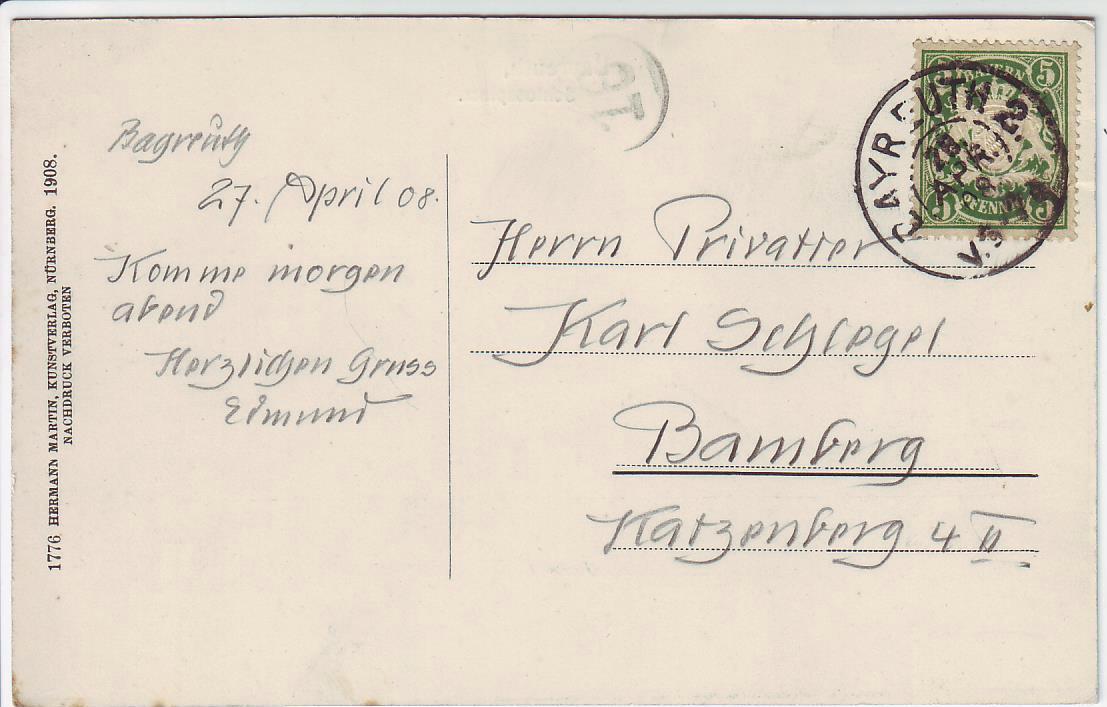 Bayreuth
27. April 08.
Komme morgen
abend
Herzlichen Gruss
Edmund
Herrn Privatier
Karl Schlegel
Bamberg
Katzenberg 4 II
1776 HERMANN MARTIN, KUNSTVERLAG, NÜRNBERG. 1908.
NACHDRUCK VERBOTEN
BAYERN
5
PFENNIG
5 5
BAYREUTH
28
APR.